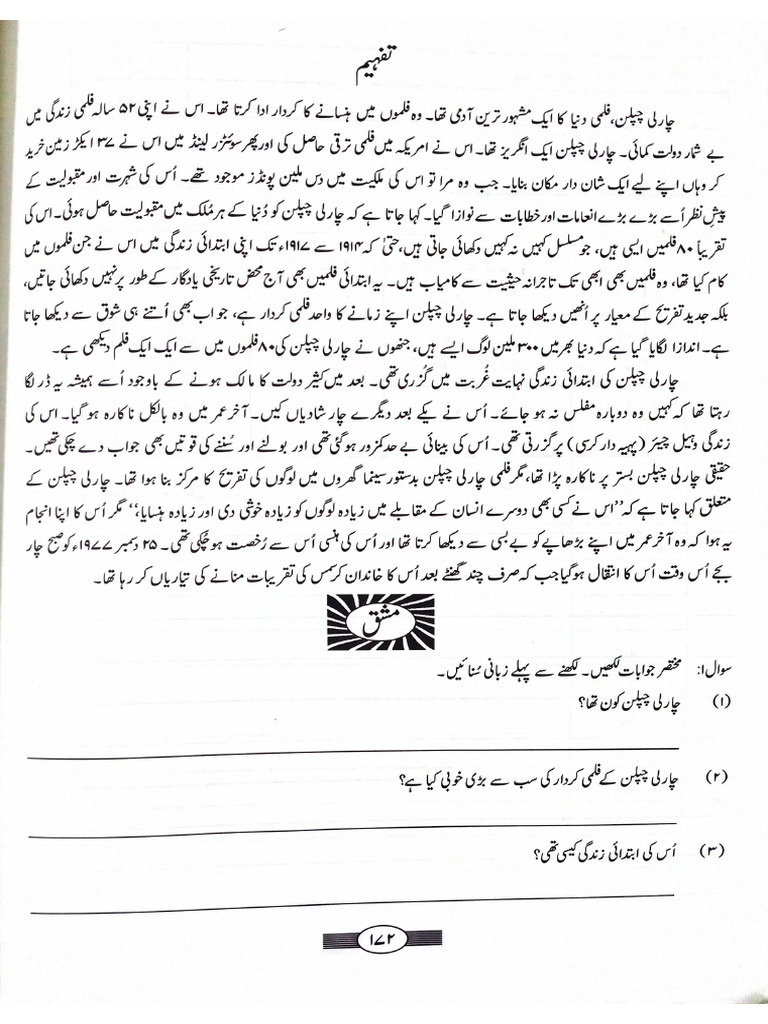 تفہیم
چارلی چپلن، فلمی دنیا کا ایک مشہور ترین آدمی تھا۔ وہ فلموں میں ہنسانے کا کردار ادا کرتا تھا۔ اس نے اپنی ۵۲ سالہ فلمی زندگی میں
بے شمار دولت کمائی۔ چارلی چپلن ایک انگریز تھا۔ اس نے امریکہ میں فلمی ترقی حاصل کی اور پھر سوئٹزر لینڈ میں اس نے ۳۷ ایکڑ زمین خرید
کر وہاں اپنے لیے ایک شان دار مکان بنایا۔ جب وہ مرا تو اس کی ملکیت میں دس ملین پونڈز موجود تھے۔ اُس کی شہرت اور مقبولیت کے
پیشِ نظر اُسے بڑے بڑے انعامات اور خطابات سے نوازا گیا۔ کہا جاتا ہے کہ چارلی چپلن کو دُنیا کے ہر مُلک میں مقبولیت حاصل ہوئی۔ اس کی
تقریباً ۸۰ فلمیں ایسی ہیں، جو مسلسل کہیں نہ کہیں دکھائی جاتی ہیں، حتیٰ کہ ۱۹۱۴ سے ۱۹۱۷ء تک اپنی ابتدائی زندگی میں اس نے جن فلموں میں
کام کیا تھا، وہ فلمیں بھی ابھی تک تاجرانہ حیثیت سے کامیاب ہیں۔ یہ ابتدائی فلمیں بھی آج محض تاریخی یادگار کے طور پر نہیں دکھائی جاتیں،
بلکہ جدید تفریح کے معیار پر اُنھیں دیکھا جاتا ہے۔ چارلی چپلن اپنے زمانے کا واحد فلمی کردار ہے، جو اب بھی اُتنے ہی شوق سے دیکھا جاتا
ہے۔ اندازا لگایا گیا ہے کہ دنیا بھر میں ۳۰۰ ملین لوگ ایسے ہیں، جنھوں نے چارلی چپلن کی ۸۰ فلموں میں سے ایک ایک فلم دیکھی ہے۔
چارلی چپلن کی ابتدائی زندگی نہایت غُربت میں گزری تھی۔ بعد میں کثیر دولت کا مالک ہونے کے باوجود اُسے ہمیشہ یہ ڈر لگا
رہتا تھا کہ کہیں وہ دوبارہ مفلس نہ ہو جائے۔ اُس نے یکے بعد دیگرے چار شادیاں کیں۔ آخر عمر میں وہ بالکل ناکارہ ہو گیا۔ اس کی
زندگی وہیل چیئر (پہیہ دار کرسی) پر گزرتی تھی۔ اُس کی بینائی بے حد کمزور ہوگئی تھی اور بولنے اور سُننے کی قوتیں بھی جواب دے چکی تھیں۔
حقیقی چارلی چپلن بستر پر ناکارہ پڑا تھا، مگر فلمی چارلی چپلن بدستور سینما گھروں میں لوگوں کی تفریح کا مرکز بنا ہوا تھا۔ چارلی چپلن کے
متعلق کہا جاتا ہے کہ ”اس نے کسی بھی دوسرے انسان کے مقابلے میں زیادہ لوگوں کو زیادہ خوشی دی اور زیادہ ہنسایا،“ مگر اُس کا اپنا انجام
یہ ہوا کہ وہ آخر عمر میں اپنے بڑھاپے کو بے بسی سے دیکھا کرتا تھا اور اُس کی ہنسی اُس سے رُخصت ہو چُکی تھی۔ ۲۵ دسمبر ۱۹۷۷ء کو صبح چار
بجے اُس وقت اُس کا انتقال ہوگیا جب کہ صرف چند گھنٹے بعد اُس کا خاندان کرسمس کی تقریبات منانے کی تیاریاں کر رہا تھا۔
مشق
سوال ۱: مختصر جوابات لکھیں۔ لکھنے سے پہلے زبانی سُنائیں۔
(۱) چارلی چپلن کون تھا؟
(۲) چارلی چپلن کے فلمی کردار کی سب سے بڑی خوبی کیا ہے؟
(۳) اُس کی ابتدائی زندگی کیسی تھی؟
۱۷۲